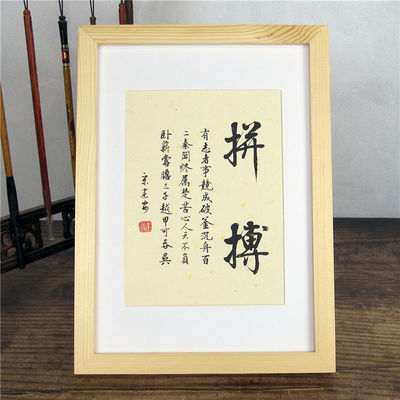 拼搏
有志者事競成破釜沉舟百
二秦関终属楚苦心人天不負
卧薪嘗膽三千越甲可吞吴